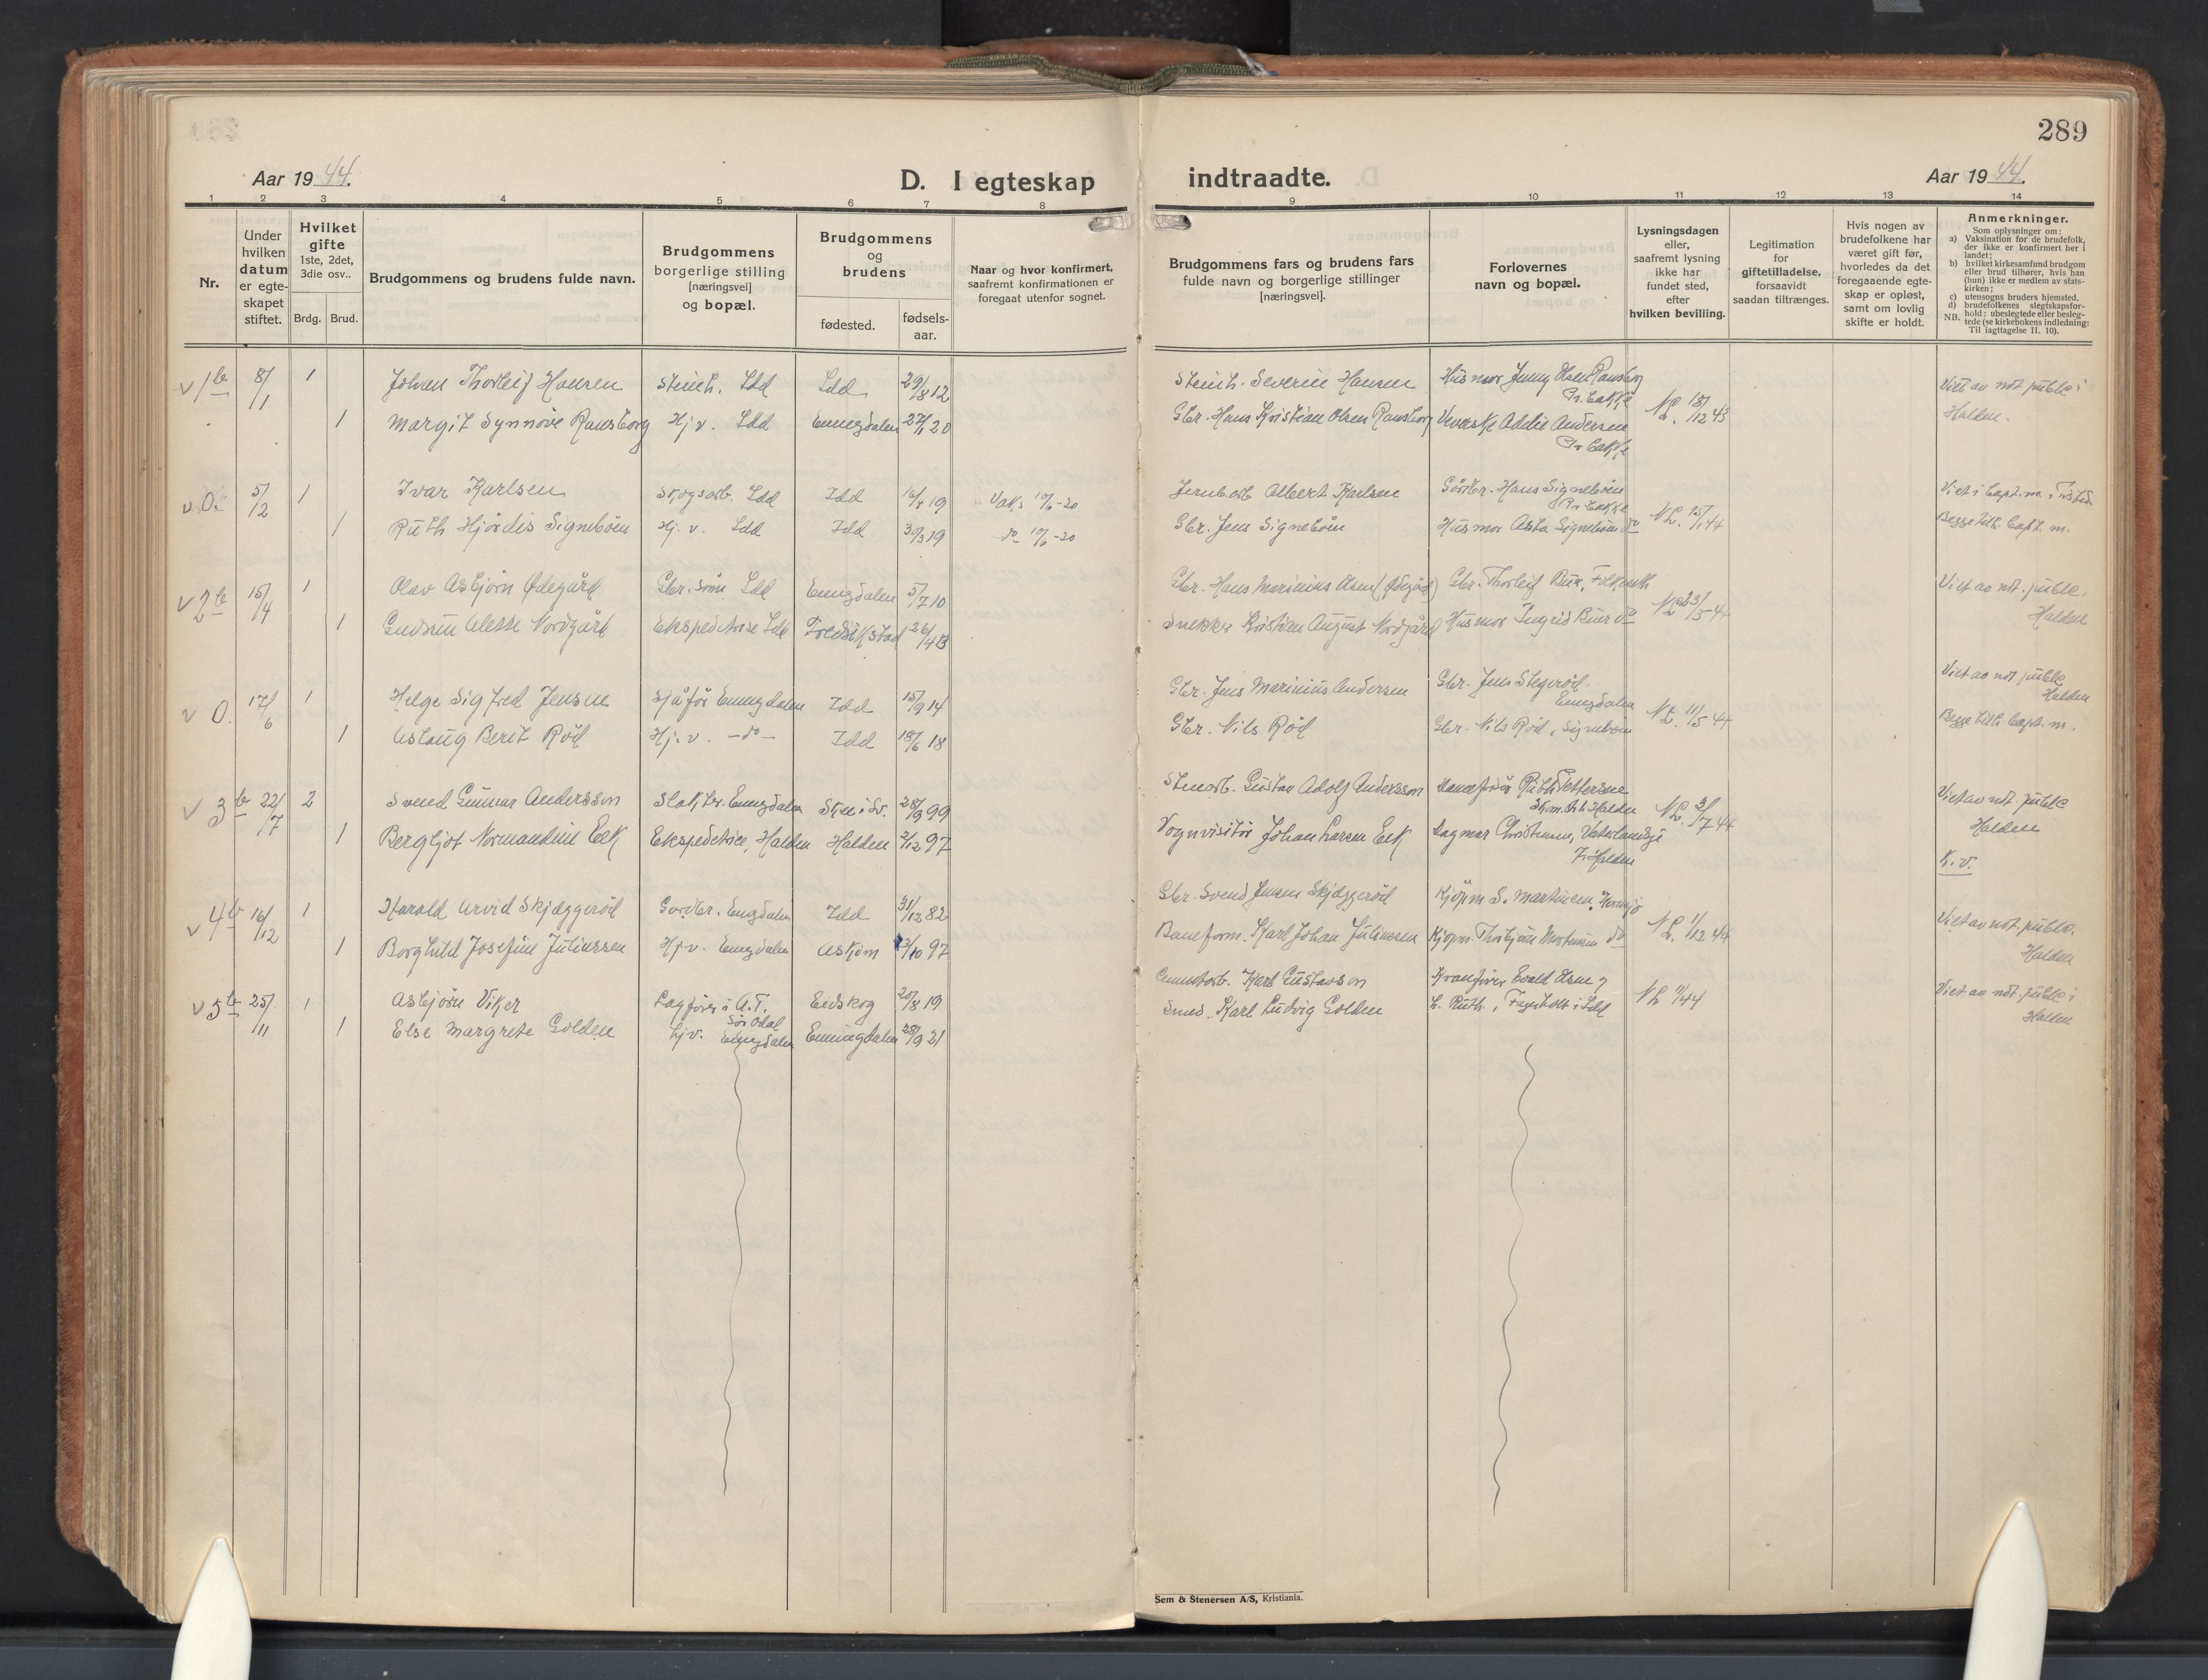 289
Aar 1944.
D. I egteskap
indtraadte.
Aar 1944.
1 2 3 4 5 6 7 8 9 10 11 12 13 14
Nr.
Under hvilken datum er egte-skapet stiftet.
Hvilket gifte 1ste, 2det, 3die osv..
Brdg. Brud.
Brudgommens og brudens fulde navn.
Brudgommens borgerlige stilling [næringsvei] og bopæl.
Brudgommens og brudens
fødested.
fødsels-aar.
Naar og hvor konfirmert, saafremt konfirmationen er foregaat utenfor sognet.
Brudgommens fars og brudens fars fulde navn og borgerlige stillinger [næringsvei].
Forlovernes navn og bopæl.
Lysningsdagen eller, saafremt lysning ikke har fundet sted, efter hvilken bevilling.
Legitimation for giftetilladelse, forsaavidt saadan tiltrænges.
Hvis nogen av brudefolkene har været gift før, hvorledes da det foregaaende egte-skap er opløst, samt om lovlig skifte er holdt.
Anmerkninger.
Som oplysninger om:
a) Vaksination for de brudefolk, der ikke er konfirmert her i landet;
b) hvilket kirkesamfund brudgom eller brud tilhører, hvis han (hun) ikke er medlem av stats-kirken;
c) utensogns bruders hjemsted.
d) brudefolkenes slegtskapsfor-hold: ubeslegtede eller besleg-tede (se kirkebokens indledning:
NB. Til iagttagelse II. 10).
v 1 b 8/1 1 Johan Thorleif Hansen Steinh. Idd Idd 29/8 12 Steinh. Severin Hansen Husmor Jenny Olsen Ramsborg Pr. bakke NL 18/12 43 Viet av not. publ. i Halden.
1 Margit Synnøve Ramsborg Hj. v. Idd Enningdalen 27/1 20 Gbr. Hans Kristian Olsen Ramsborg Adele Andersen Pr bakke
v 0. 5/2 1 Ivar Karlsen Skogsarb. Idd Idd 16/4 19 Vaks 10/6-20 Jernb arb Albert Karlsen Gårdbr. Hans Signebøen Pr. bakke NL. 15/1 44 Viet i bapt. m. i
1 Ruth Hjørdis Signebøen Hj. v. Idd Idd 30/3 19 do 10/6-20 Gbr. Jens Signebøen Husmor Asta Signebøen do Begge tilh. bapt. m.
v 2 b 15/4 1 Olav Asbjørn Ødegård Gbr. sønn Idd Enningdalen 5/7 10 Gbr. Hans Marinius Olsen (Ødegård) Gbr. Thorleif Buer, NL 23/3 44 Viet av not. publ.
1 Gudrun Alette Nordgård Ekspeditrise Idd Fredrikstad 26/4 13 Snekker Kristian August Nordgård Husmor Ingrid Buer do Halden
v 0. 17/6 1 Helge Sigfred Jensen Sjåfør Enningdalen Idd 15/9 14 Gbr. Jens Marinius Andersen Gbr. Jens Stegerød. Enningdalen NL. 11/5 44 Viet av not publ. Halden
1 Aslaug Berit Rød Hj. v. -do- Idd 18/6 18 Gbr. Nils Rød Gbr. Nils Rød, Signebøen Begge tilh. bapt. m.
v 3 b 22/7 2 Svend Gunnar Andersson Slakter. Enningdalen Skee i Sv. 28/9 99 Stenarb. Gustav Adolf Andersson Ruth Pettersen Halden NL. 3/7 44 Viet av not. publ. Halden
1 Bergljot Normandine Eek Ekspeditrice, Halden Halden 2/12 97 Vognvisitør Johan Larsen Eek Dagmar Christensen, 7, Halden K. v.
v 4 b 16/12 1 Harald Arvid Skjæggerød Gardbr. Enngdalen Idd 31/12 82 Gbr. Svend Jensen Skjæggerød Kjøpm S. Martinsen, Kornsjø NL. 1/12 44 Viet av not. publ.
1 Borghild Josefine Juliussen Hj. v. Enngdalen Askim 3/10 97 Baneform. Karl Johan Juliussen Kjøpm. Thorbjørn Martinsen do Halden
v 5 b 25/11 1 Asbjørn Viker Lagfører i A.T. Sør Odal Eidskog 20/8 19 Karl Gustavson Kranfører Evald Olsen og NL /44 Viet av not publ. i
1 Else Margrete Golden hj. v. Enngdalen Enningdalen 28/9 21 Smed. Karl Ludvig Golden h. Ruth, i Idd Halden
Sem & Stenersen A/S, Kristiania.